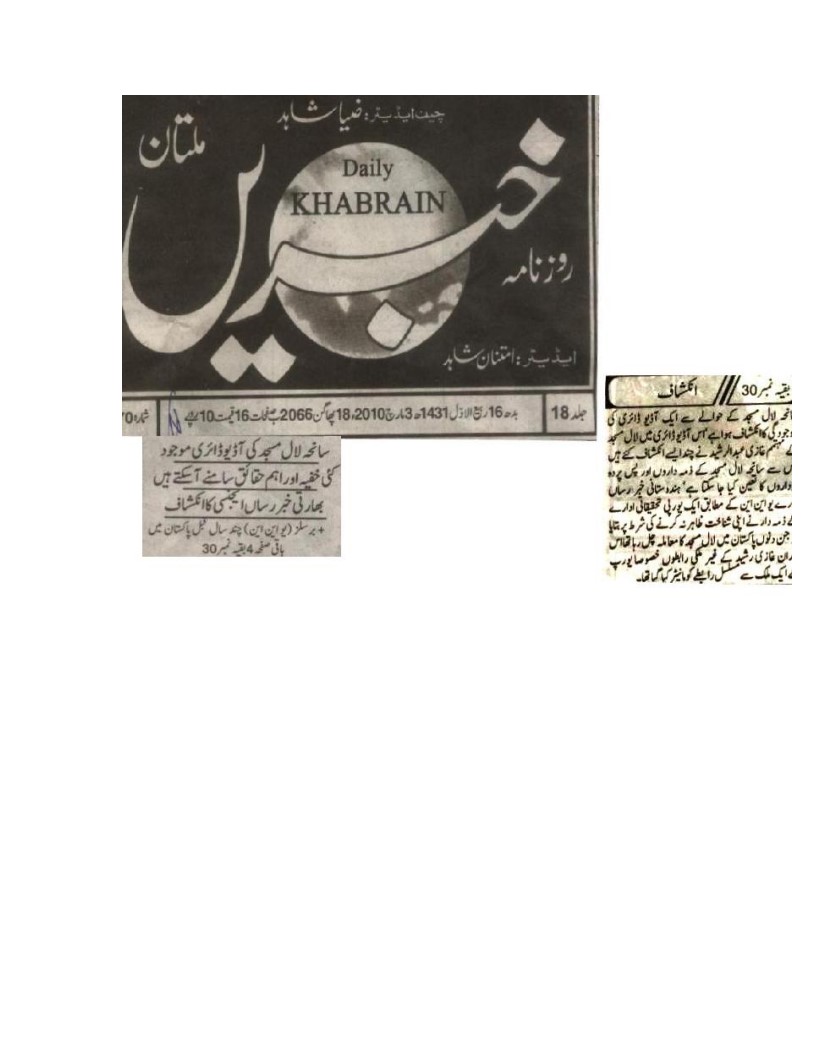 چیف ایڈیٹر: ضیا شاہد
ملتان
Daily
KHABRAIN
خبریں
روزنامہ
ایڈیٹر: امتنان شاہد
جلد 18 بدھ 16 ربیع الاول 1431ھ 3 مارچ 2010ء 18 پھاگن 2066ب صفحات 16 قیمت 10 روپے شمارہ
سانحہ لال مسجد کی آڈیو ڈائری موجود
کئی خفیہ اور اہم حقائق سامنے آسکتے ہیں
بھارتی خبر رساں ایجنسی کا انکشاف
برسلز (یو این این) چند سال قبل پاکستان میں
باقی صفحہ 4 بقیہ نمبر 30
بقیہ نمبر 30 انکشاف
سانحہ لال مسجد کے حوالے سے ایک آڈیو ڈائری کی
موجودگی کا انکشاف ہوا ہے اس آڈیو ڈائری میں لال مسجد
مہتمم غازی عبدالرشید نے چند ایسے انکشاف کئے ہیں
سے سانحہ لال مسجد کے ذمہ داروں اور پس پردہ
کا تعین کیا جا سکتا ہے' ہندوستانی خبر رساں
یو این این کے مطابق ایک یورپی تحقیقاتی ادارے
ذمہ دار نے اپنی شناخت ظاہر نہ کرنے کی شرط پر بتایا
جن دنوں پاکستان میں لال مسجد کا معاملہ چل رہا تھا اس
غازی رشید کے غیر ملکی رابطوں خصوصا یورپ
ایک ملک سے مسلسل رابطے کو مانیٹر کیا گیا تھا۔